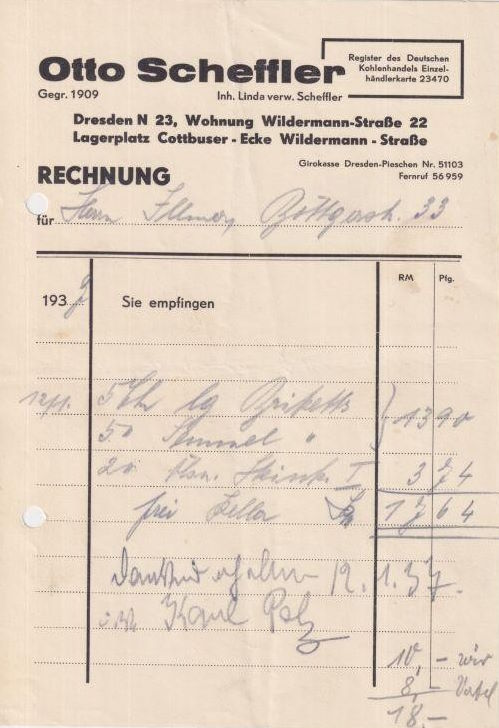 Otto Scheffler
Register des Deutschen
Kohlenhandels Einzel-
händlerkarte 23470
Gegr. 1909
Inh. Linda verw. Scheffler
Dresden N 23, Wohnung Wildermann-Straße 22
Lagerplatz Cottbuser - Ecke Wildermann - Straße
Girokasse Dresden-Pieschen Nr. 51103
Fernruf 56959
RECHNUNG
für Herrn Illmer, Böttgerstr. 33
RM Pfg.
1937 Sie empfingen
12/1. 5 Ztr. lg Briketts
50 Semmel " 13 90
20 I 3 74
frei Keller 17 64
Dankend erhalten 12.1.37.
Karl
10,- wir
8,-
18.-